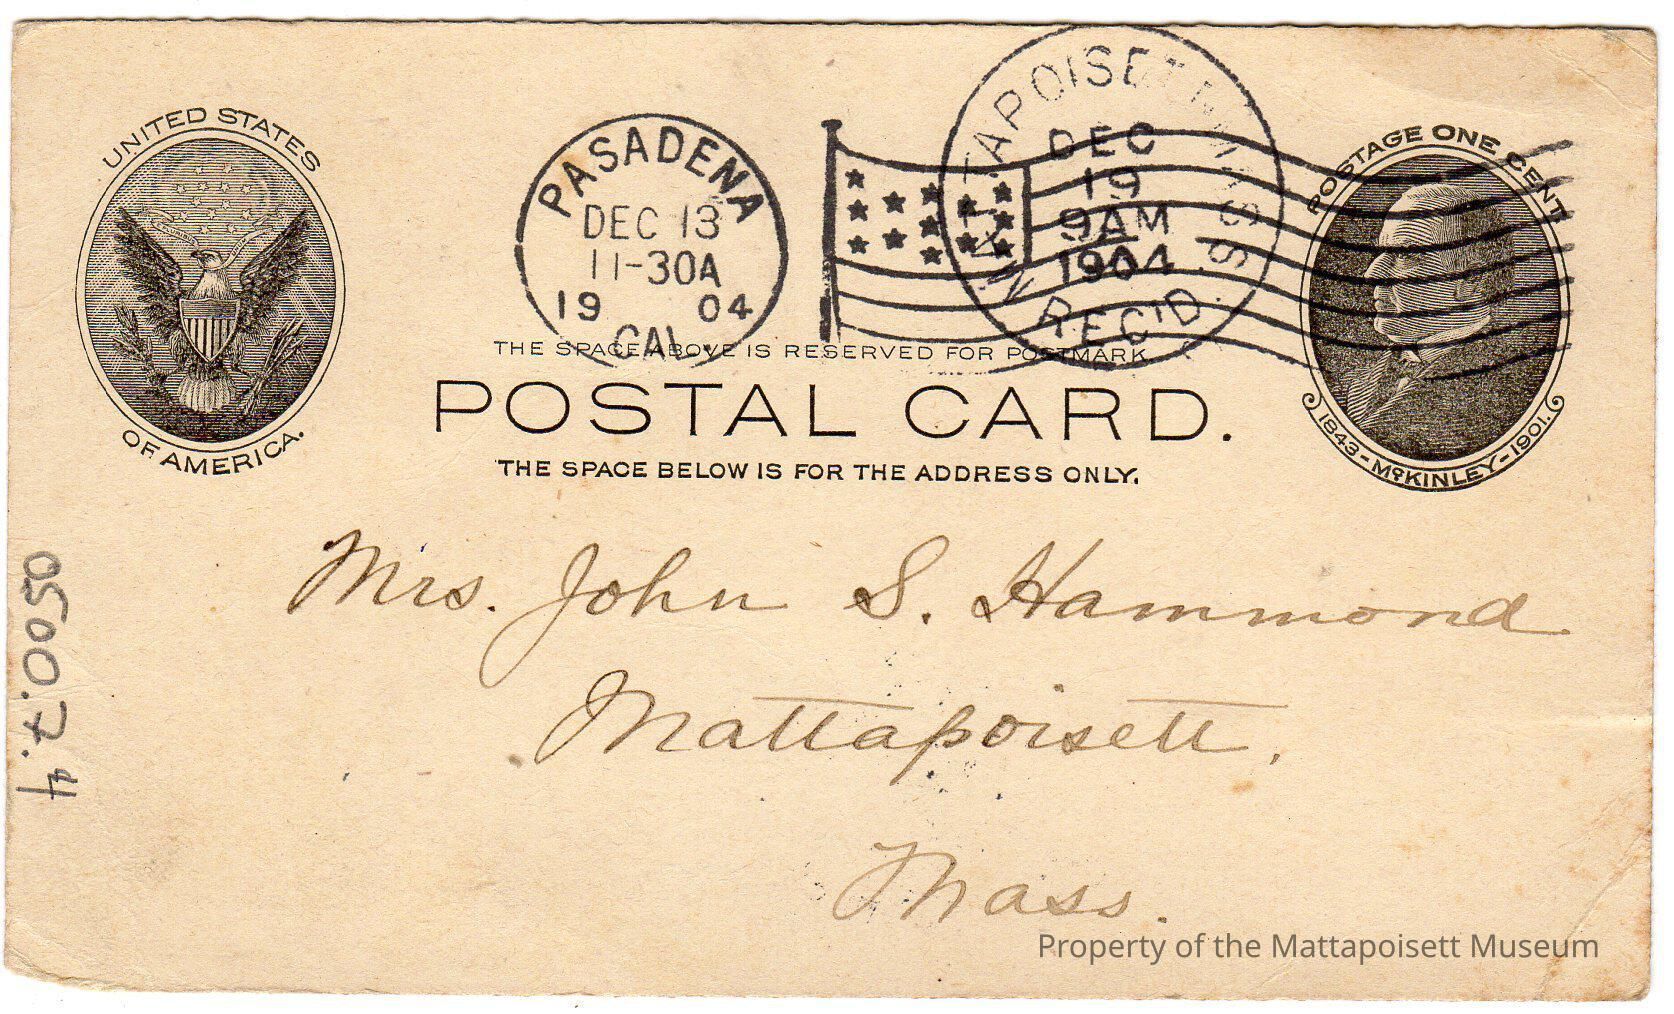 UNITED STATES
OF AMERICA.
PASADENA
DEC 13
11-30A
19 04
CAL.
MATTAPOISETT MASS.
DEC
19
9AM
1904
REC'D.
POSTAGE ONE CENT
1843-McKINLEY-1901.
THE SPACE ABOVE IS RESERVED FOR POSTMARK.
POSTAL CARD.
THE SPACE BELOW IS FOR THE ADDRESS ONLY.
Mrs. John S. Hammond
Mattapoisett,
Mass.
4.7.0050
Property of the Mattapoisett Museum